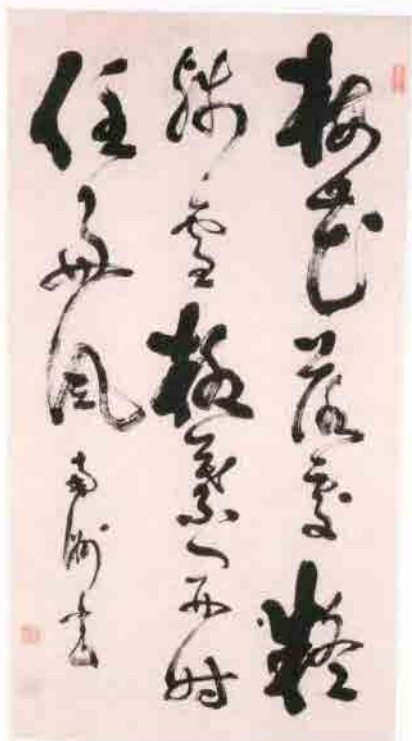 梅花落處疑
殘雪柳葉開時
任好風 南洲書